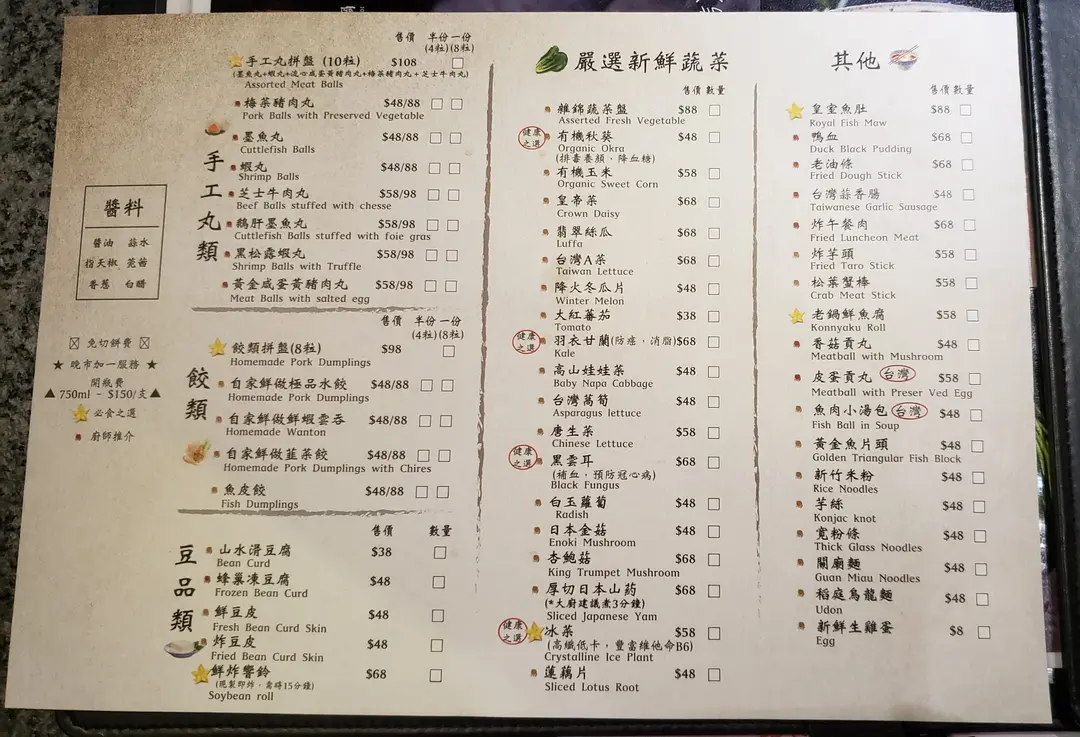 醬料
醬油 蒜水
指天椒 芫茜
香蔥 白醋
免切餅費
★ 晚市加一服務 ★
開瓶費
▲ 750ml - $150/支 ▲
必食之選
廚師推介
手工丸類
售價 半份 一份
(4粒) (8粒)
手工丸拼盤 (10粒) $108
(墨魚丸+蝦丸+流心咸蛋黃豬肉丸+梅菜豬肉丸+芝士牛肉丸)
Assorted Meat Balls
梅菜豬肉丸 $48/88
Pork Balls with Preserved Vegetable
墨魚丸 $48/88
Cuttlefish Balls
蝦丸 $48/88
Shrimp Balls
芝士牛肉丸 $58/98
Beef Balls stuffed with chesse
鵝肝墨魚丸 $58/98
Cuttlefish Balls stuffed with foie gras
黑松露蝦丸 $58/98
Shrimp Balls with Truffle
黃金咸蛋黃豬肉丸 $58/98
Meat Balls with salted egg
餃類
售價 半份 一份
(4粒) (8粒)
餃類拼盤(8粒) $98
Homemade Pork Dumplings
自家鮮做極品水餃 $48/88
Homemade Pork Dumplings
自家鮮做鮮蝦雲吞 $48/88
Homemade Wanton
自家鮮做韮菜餃 $48/88
Homemade Pork Dumplings with Chires
魚皮餃 $48/88
Fish Dumplings
豆品類
售價 數量
山水滑豆腐 $38
Bean Curd
蜂巢凍豆腐 $48
Frozen Bean Curd
鮮豆皮 $48
Fresh Bean Curd Skin
炸豆皮 $48
Fried Bean Curd Skin
鮮炸響鈴 $68
(現製即炸，需時15分鐘)
Soybean roll
嚴選新鮮蔬菜
售價 數量
雜錦蔬菜盤 $88
Asserted Fresh Vegetable
健康之選 有機秋葵 $48
Organic Okra
(排毒養顏，降血糖)
有機玉米 $58
Organic Sweet Corn
皇帝菜 $68
Crown Daisy
翡翠絲瓜 $68
Luffa
台灣A菜 $68
Taiwan Lettuce
降火冬瓜片 $48
Winter Melon
大紅蕃茄 $38
Tomato
健康之選 羽衣甘蘭(防癌，消脂) $68
Kale
高山娃娃菜 $48
Baby Napa Cabbage
台灣萵筍 $48
Asparagus lettuce
唐生菜 $58
Chinese Lettuce
健康之選 黑雲耳 $68
(補血，預防冠心病)
Black Fungus
白玉蘿蔔 $48
Radish
日本金菇 $48
Enoki Mushroom
杏鮑菇 $68
King Trumpet Mushroom
厚切日本山药 $68
(*大廚建議煮3分鐘)
Sliced Japanese Yam
健康之選 冰菜 $58
(高纖低卡，豐富維他命B6)
Crystalline Ice Plant
蓮藕片 $48
Sliced Lotus Root
其他
售價 數量
皇室魚肚 $88
Royal Fish Maw
鴨血 $68
Duck Black Pudding
老油條 $68
Fried Dough Stick
台灣蒜香腸 $48
Taiwanese Garlic Sausage
炸午餐肉 $68
Fried Luncheon Meat
炸芋頭 $58
Fried Taro Stick
松葉蟹棒 $58
Crab Meat Stick
老鍋鮮魚腐 $58
Konnyaku Roll
香菇貢丸 $48
Meatball with Mushroom
皮蛋貢丸 台灣 $58
Meatball with Preser Ved Egg
魚肉小湯包 台灣 $48
Fish Ball in Soup
黃金魚片頭 $48
Golden Triangular Fish Block
新竹米粉 $48
Rice Noodles
芋絲 $48
Konjac knot
寬粉條 $48
Thick Glass Noodles
關廟麵 $48
Guan Miau Noodles
稻庭烏龍麵 $48
Udon
新鮮生雞蛋 $8
Egg